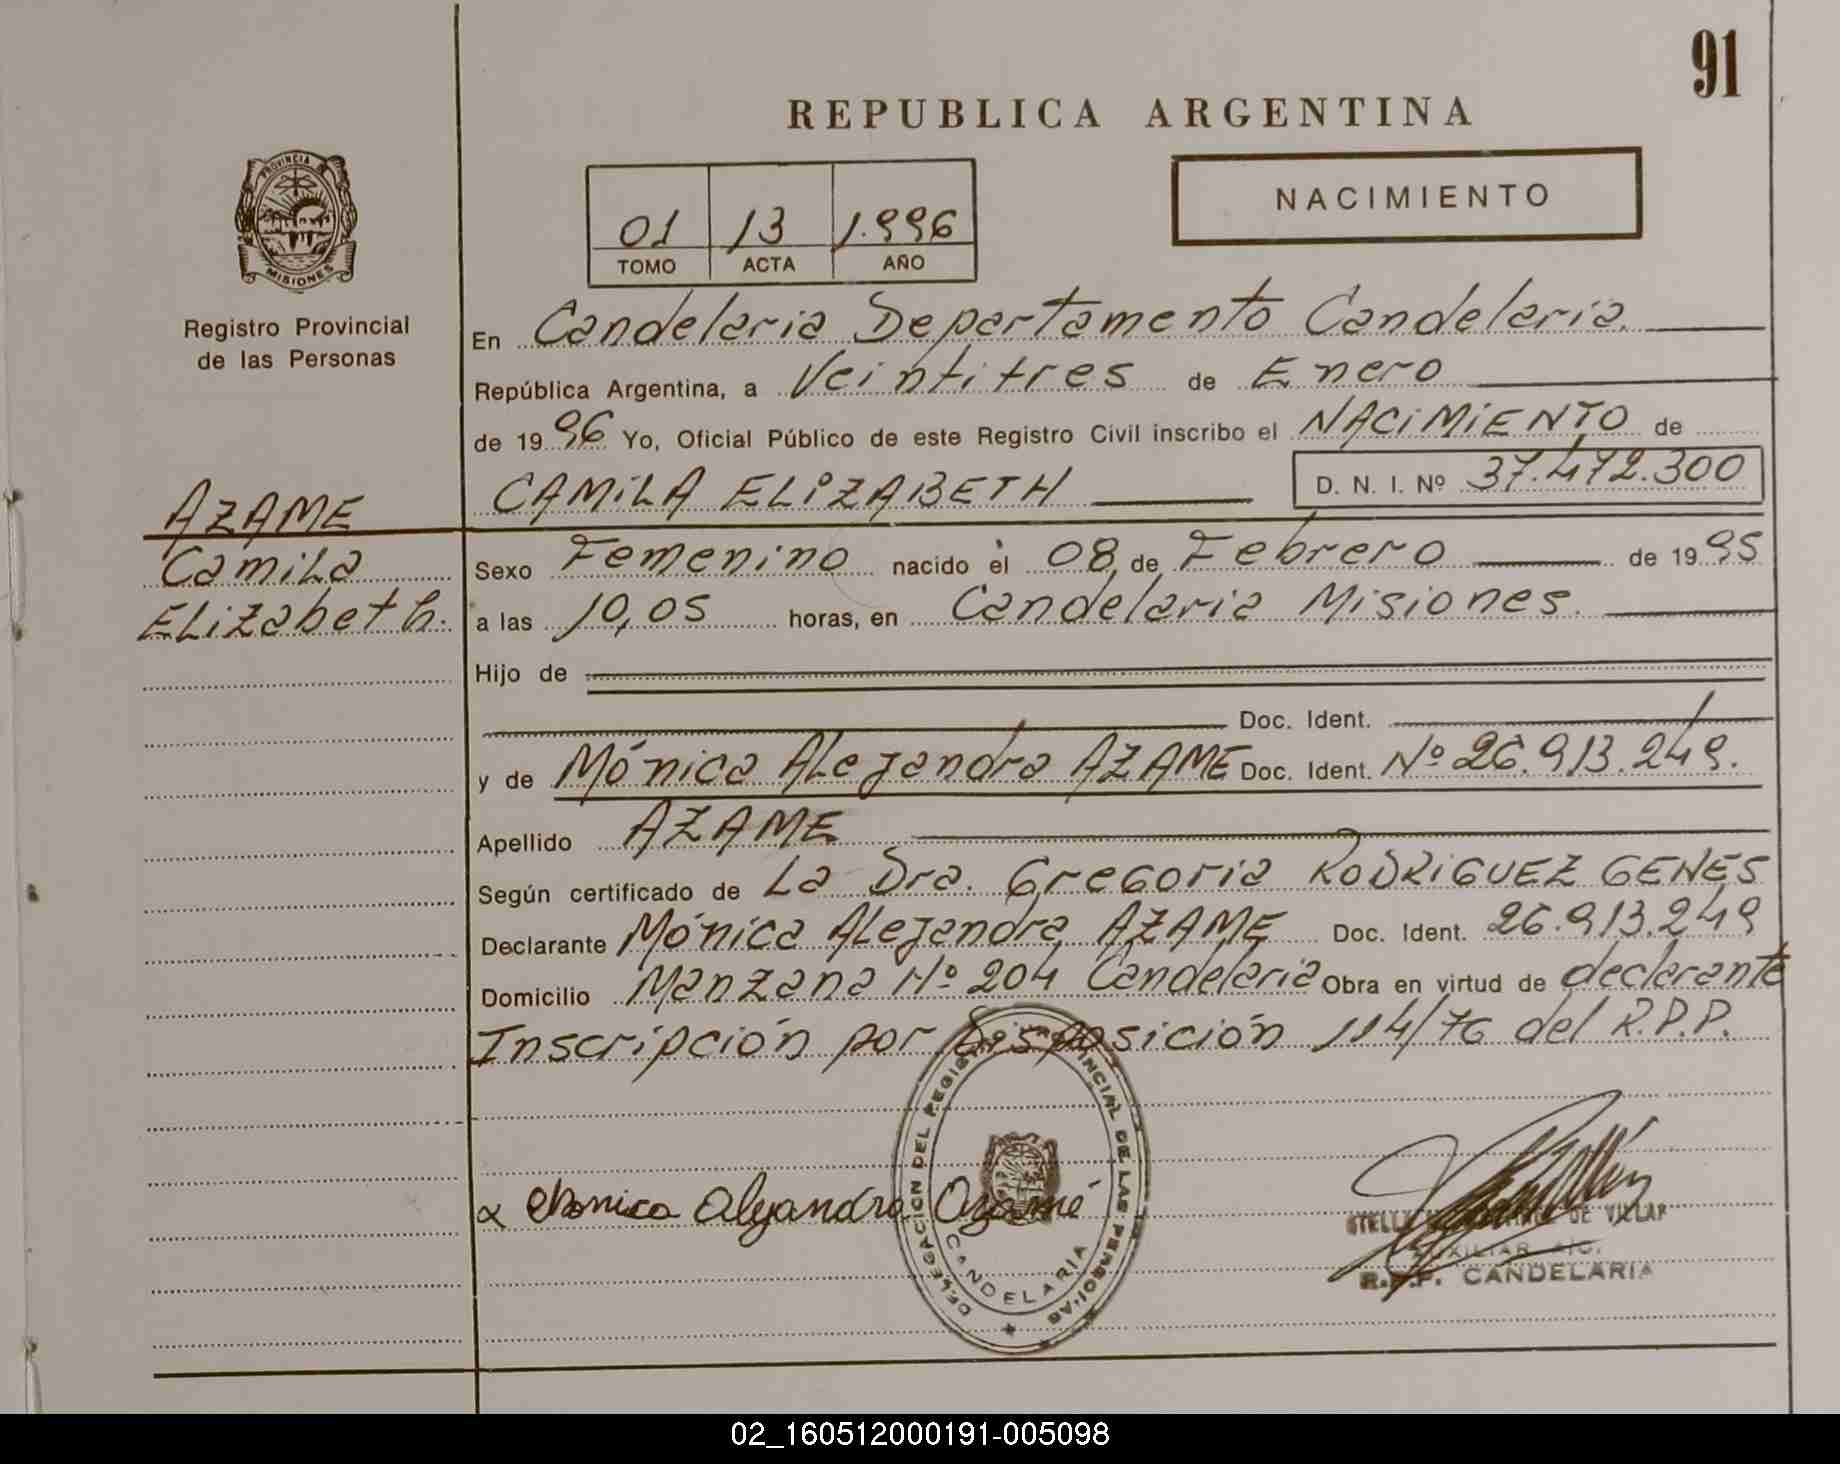 91
REPUBLICA ARGENTINA
PROVINCIA
MISIONES
Registro Provincial
de las Personas
01 13 1.996
TOMO ACTA AÑO
NACIMIENTO
En Candelaria Departamento Candelaria.
República Argentina, a Veintitres de Enero
de 1996 Yo, Oficial Público de este Registro Civil inscribo el NACIMIENTO de
CAMILA ELIZABETH D. N. I. Nº 37.472.300
AZAME
Camila
Elizabeth.
Sexo Femenino nacido el 08 de Febrero de 1995
a las 10,05 horas, en Candelaria Misiones.
Hijo de
Doc. Ident.
y de Mónica Alejandra AZAME Doc. Ident. Nº 26.913.249.
Apellido AZAME
Según certificado de La Dra. Gregoria RODRIGUEZ GENES
Declarante Mónica Alejandra AZAME Doc. Ident. 26.913.249
Domicilio Manzana Nº 204 Candelaria Obra en virtud de declarante
Inscripción por Disposición 114/76 del R.P.P.
Monica Alejandra Azame
DELEGACION DEL REGISTRO PROVINCIAL DE LAS PERSONAS
CANDELARIA
DE VILLAR
AUXILIAR A/C.
R.P.P. CANDELARIA
02_160512000191-005098